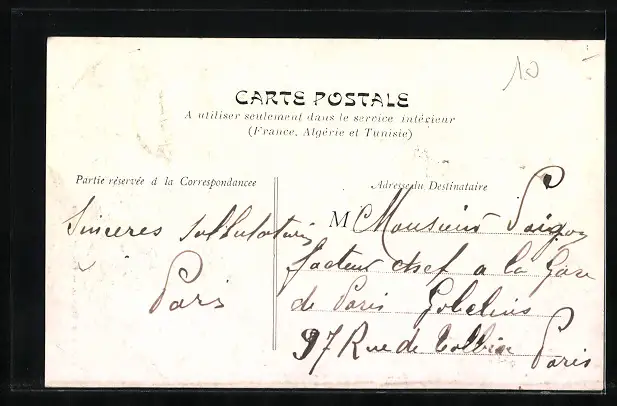 10
CARTE POSTALE
A utiliser seulement dans le service intérieur
(France, Algérie et Tunisie)
Partie réservée à la Correspondancee
Adresse du Destinataire
Sinceres
Paris
M Monsieur
facteur chef a la Gare
de Paris Gobelins
97 Rue de Tolbiac
Paris